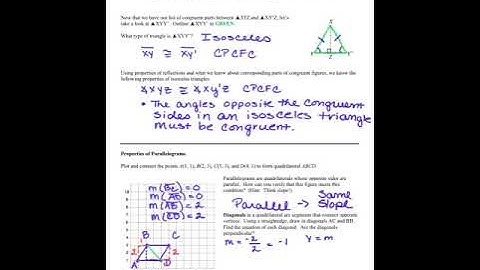 Now that we have our list of congruent parts between ▲XYZ and ▲XY'Z, let's
take a look at ▲XYY'. Outline ▲XYY' in GREEN.
What type of triangle is ▲XYY'? Isosceles
XY ≅ XY' CPCFC
Using properties of reflections and what we know about corresponding parts of congruent figures, we know the
following properties of isosceles triangles.
∡XYZ ≅ ∡XY'Z CPCFC
• The angles opposite the congruent
sides in an isosceles triangle
must be congruent.
Properties of Parallelograms
Plot and connect the points A(1, 1), B(2, 3), C(5, 3), and D(4, 1) to form quadrilateral ABCD.
Parallelograms are quadrilaterals whose opposite sides are
parallel. How can you verify that this figure meets this
condition? (Hint: Think slope!)
Parallel → Same
Slope
Diagonals in a quadrilateral are segments that connect opposite
vertices. Using a straightedge, draw in diagonals AC and BD.
Find the equation of each diagonal. Are the diagonals
perpendicular?
m = -2/2 = -1 y = m
m(BC) = 0
m(AD) = 0
m(AB) = 2
m(CD) = 2
B C
A D